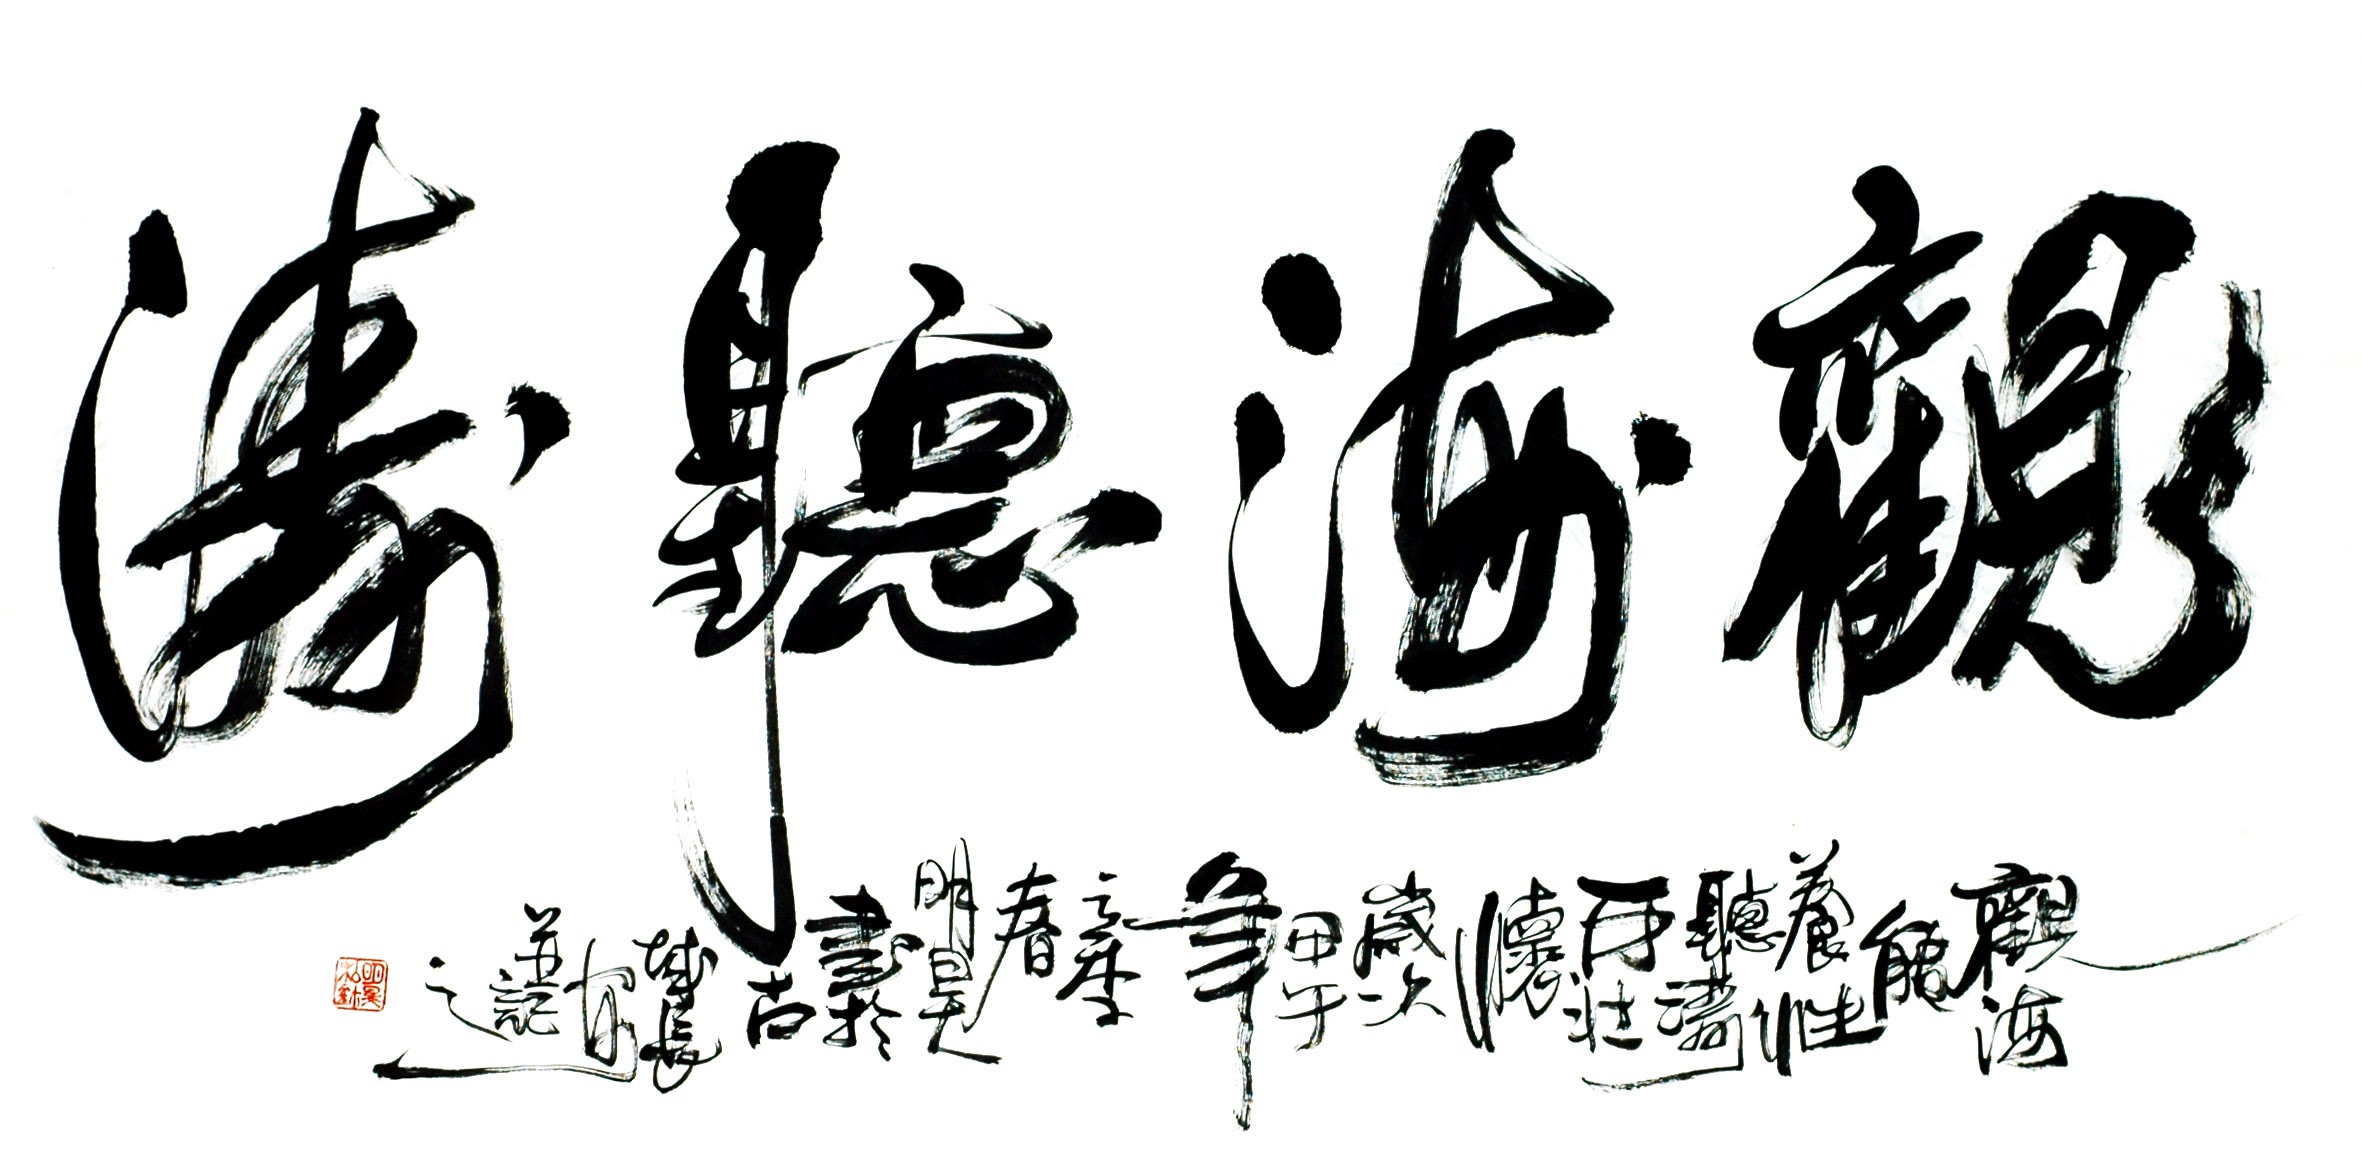 觀海聽濤
觀海能養性聽濤可壯懷歲次甲午年之季春明昊書於古城長並記之